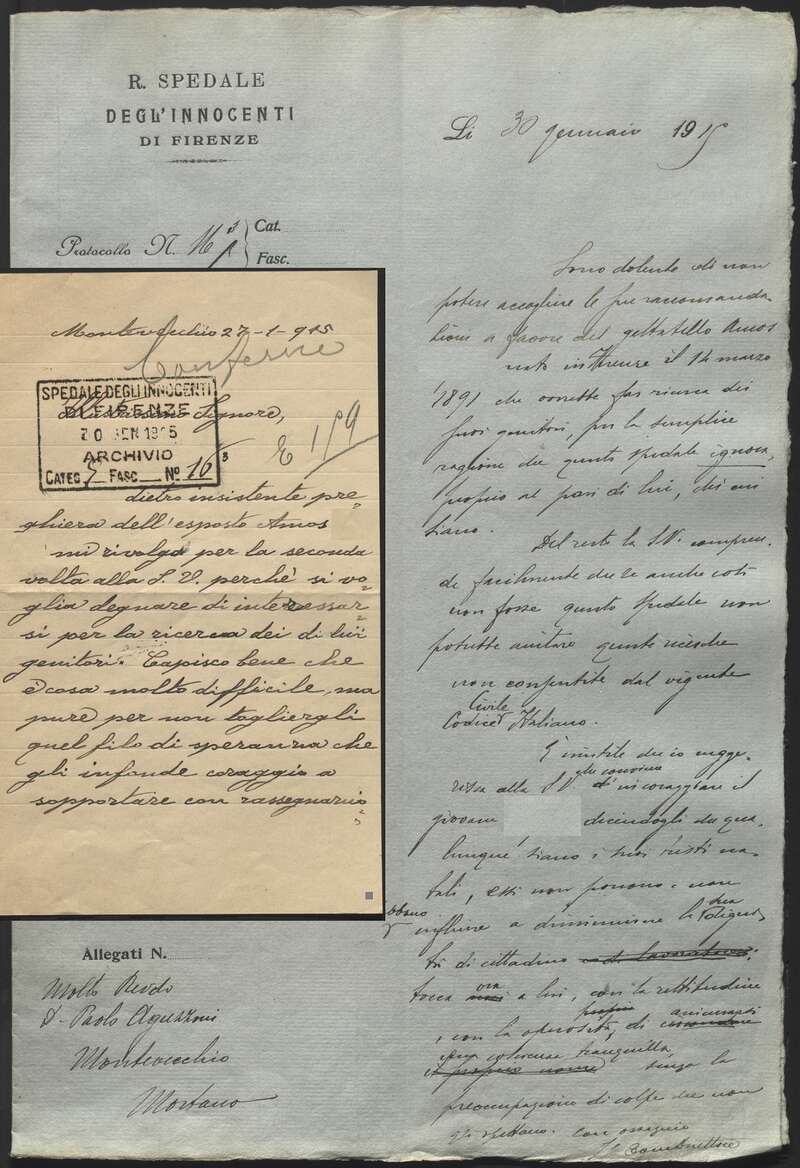 R. SPEDALE
DEGL'INNOCENTI
DI FIRENZE
Protocollo N. 16³
Cat.
Fasc.
Montevecchio 27-1-915
SPEDALE DEGLI INNOCENTI
DI FIRENZE
30 GEN 1915
ARCHIVIO
CATEG 5 FASC Nº 16³
Illustrissimo Signore,
E 1/59
dietro insistente pre=
ghiera dell'esposto Amos
mi rivolgo per la seconda
volta alla S. V. perchè si vo=
glia degnare di interessar=
si per la ricerca dei di lui
genitori. Capisco bene che
è cosa molto difficile, ma
pure per non togliergli
quel filo di speranza che
gli infonde coraggio a
sopportare con rassegnazio=
Allegati N.
Molto Revdo
D. Paolo Aguzzoni
Montevecchio
Li 30 gennaio 1915
Sono dolente di non
potere accogliere le sue raccomanda-
zioni a favore del gettatello Amos
nato in Firenze il 14 marzo
1891 che vorrebbe far ricerca dei
suoi genitori, per la semplice
ragione che questo Spedale ignora,
proprio al pari di lui, chi essi
siano.
Del resto la S.V. compren-
de facilmente che se anche così
non fosse questo Spedale non
potrebbe aiutare queste ricerche
non consentite dal vigente
Civile
Codice Italiano.
È inutile che io sugge-
risca alla S.V. d'incoraggiare il
giovane dicendogli che qua-
lunque siano i suoi tristi na-
tali, essi non possono e non
debbano influire a diminuire la sua digni-
tà di cittadino e di lavoratore:
tocca ora a lui, con la rettitudine
e con la operosità, di
coscienza tranquilla, senza la
il proprio nome
preoccupazione di colpe che non
gli spettano. Con ossequio